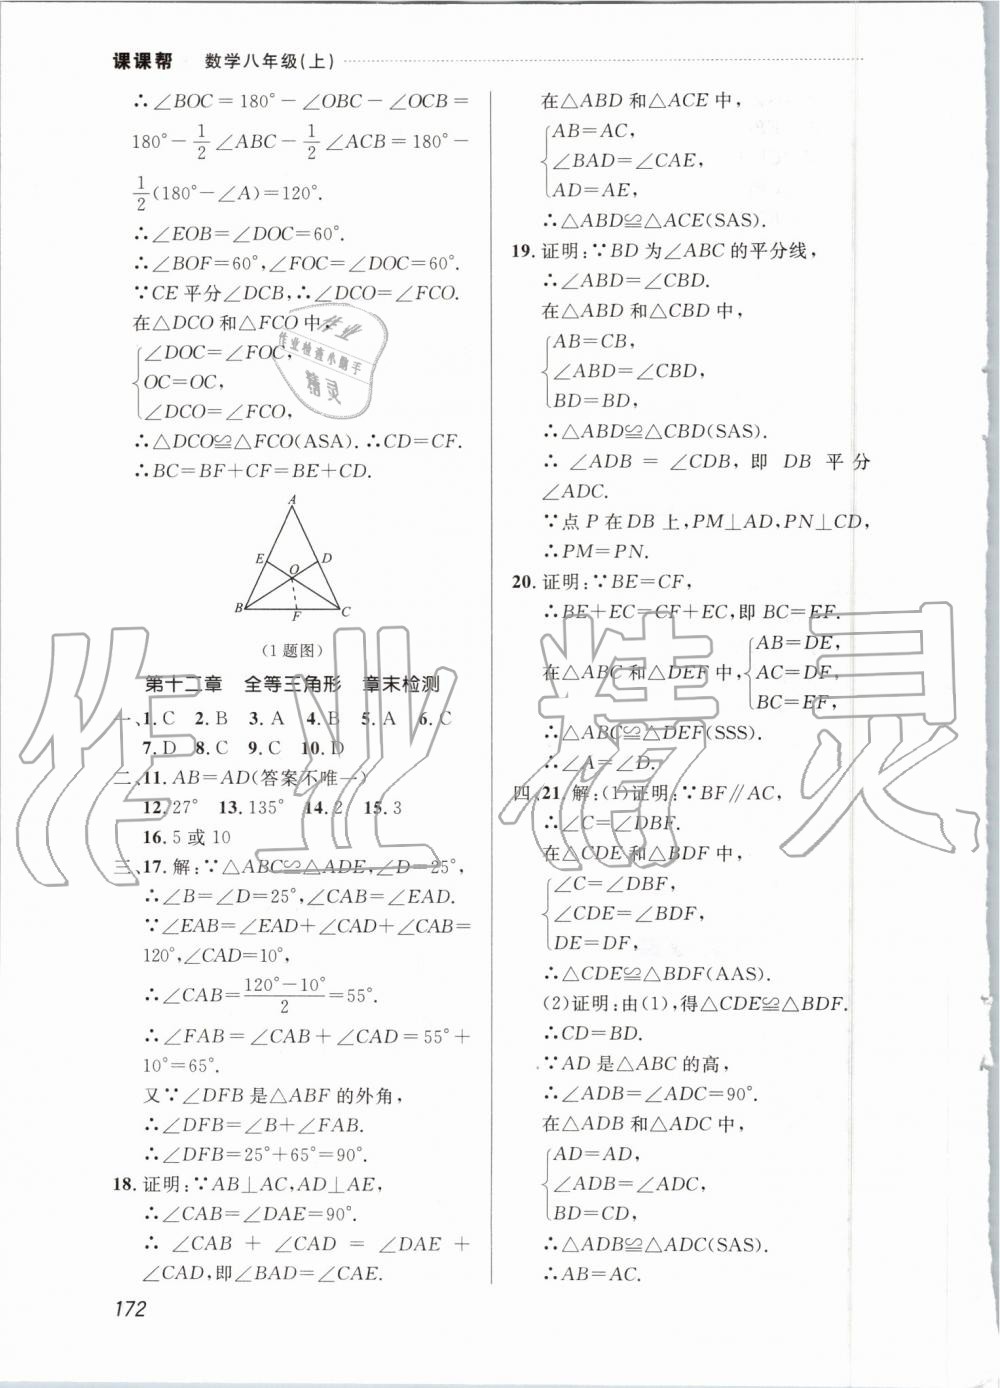 课课帮 数学八年级(上)
∴∠BOC=180°-∠OBC-∠OCB=
180°-1/2∠ABC-1/2∠ACB=180°-
1/2(180°-∠A)=120°.
∴∠EOB=∠DOC=60°.
∴∠BOF=60°,∠FOC=∠DOC=60°.
∵CE平分∠DCB,∴∠DCO=∠FCO.
在△DCO和△FCO中,
∠DOC=∠FOC,
OC=OC,
∠DCO=∠FCO,
∴△DCO≌△FCO(ASA).∴CD=CF.
∴BC=BF+CF=BE+CD.
A
E
D
O
B
F
C
(1题图)
第十二章 全等三角形 章末检测
一、1.C 2.B 3.A 4.B 5.A 6.C
7.D 8.C 9.C 10.D
二、11.AB=AD(答案不唯一)
12.27° 13.135° 14.2 15.3
16.5或10
三、17.解:∵△ABC≌△ADE,∠D=25°,
∴∠B=∠D=25°,∠CAB=∠EAD.
∵∠EAB=∠EAD+∠CAD+∠CAB=
120°,∠CAD=10°,
∴∠CAB=(120°-10°)/2=55°.
∴∠FAB=∠CAB+∠CAD=55°+
10°=65°.
又∵∠DFB是△ABF的外角,
∴∠DFB=∠B+∠FAB.
∴∠DFB=25°+65°=90°.
18.证明:∵AB⊥AC,AD⊥AE,
∴∠CAB=∠DAE=90°.
∴∠CAB+∠CAD=∠DAE+
∠CAD,即∠BAD=∠CAE.
在△ABD和△ACE中,
AB=AC,
∠BAD=∠CAE,
AD=AE,
∴△ABD≌△ACE(SAS).
19.证明:∵BD为∠ABC的平分线,
∴∠ABD=∠CBD.
在△ABD和△CBD中,
AB=CB,
∠ABD=∠CBD,
BD=BD,
∴△ABD≌△CBD(SAS).
∴∠ADB=∠CDB,即DB平分
∠ADC.
∵点P在DB上,PM⊥AD,PN⊥CD,
∴PM=PN.
20.证明:∵BE=CF,
∴BE+EC=CF+EC,即BC=EF.
AB=DE,
在△ABC和△DEF中,AC=DF,
BC=EF,
∴△ABC≌△DEF(SSS).
∴∠A=∠D.
四、21.解:(1)证明:∵BF∥AC,
∴∠C=∠DBF.
在△CDE和△BDF中,
∠C=∠DBF,
∠CDE=∠BDF,
DE=DF,
∴△CDE≌△BDF(AAS).
(2)证明:由(1),得△CDE≌△BDF.
∴CD=BD.
∵AD是△ABC的高,
∴∠ADB=∠ADC=90°.
在△ADB和△ADC中,
AD=AD,
∠ADB=∠ADC,
BD=CD,
∴△ADB≌△ADC(SAS).
∴AB=AC.
172
作业
作业检查小助手
精灵
作业精灵